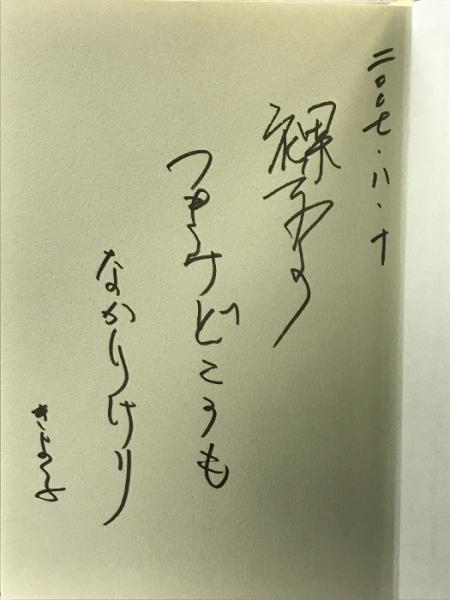 二〇〇七・八・十
裸子の
つまみどころも
なかりけり